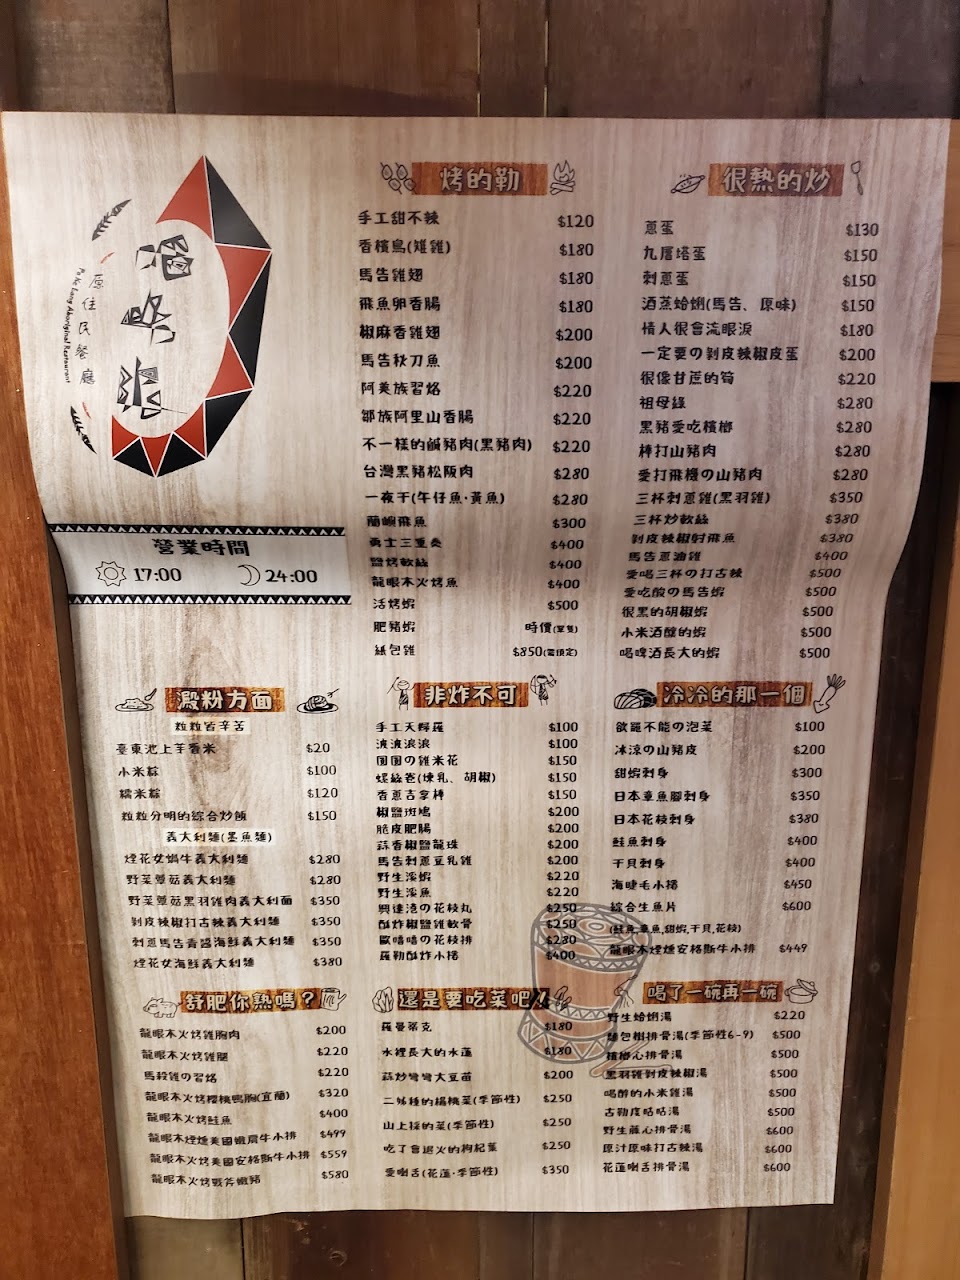 原住民餐廳
Pa Ke Lang Aboriginal Restaurant
營業時間
17:00 24:00
烤的勒
手工甜不辣 $120
香檳鳥(雉雞) $180
馬告雞翅 $180
飛魚卵香腸 $180
椒麻香雞翅 $200
馬告秋刀魚 $200
阿美族習烙 $220
鄒族阿里山香腸 $220
不一樣的鹹豬肉(黑豬肉) $220
台灣黑豬松阪肉 $280
一夜干(午仔魚·黃魚) $280
蘭嶼飛魚 $300
勇士三重奏 $400
鹽烤軟絲 $400
龍眼木火烤魚 $400
活烤蝦 $500
肥豬蝦 時價(單隻)
紙包雞 $850(需預定)
很熱的炒
蔥蛋 $130
九層塔蛋 $150
刺蔥蛋 $150
酒蒸蛤蜊(馬告、原味) $150
情人很會流眼淚 $180
一定要の剝皮辣椒皮蛋 $200
很像甘蔗的筍 $220
祖母綠 $280
黑豬愛吃檳榔 $280
棒打山豬肉 $280
愛打飛機の山豬肉 $280
三杯刺蔥雞(黑羽雞) $350
三杯炒軟絲 $380
剝皮辣椒射飛魚 $380
馬告蔥油雞 $400
愛喝三杯の打古辣 $500
愛吃酸の馬告蝦 $500
很黑的胡椒蝦 $500
小米酒釀的蝦 $500
喝啤酒長大的蝦 $500
澱粉方面
粒粒皆辛苦
臺東池上芋香米 $20
小米粽 $100
糯米粽 $120
粒粒分明的綜合炒飯 $150
義大利麵(墨魚麵)
煙花女蝸牛義大利麵 $280
野菜蕈菇義大利麵 $280
野菜蕈菇黑羽雞肉義大利面 $350
剝皮辣椒打古辣義大利麵 $350
刺蔥馬告青醬海鮮義大利麵 $350
煙花女海鮮義大利麵 $380
非炸不可
手工天婦羅 $100
波波浪浪 $100
圈圈の雞米花 $150
螺絲卷(煉乳、胡椒) $150
香蔥吉拿棒 $150
椒鹽斑鳩 $200
脆皮肥腸 $200
蒜香椒鹽龍珠 $200
馬告刺蔥豆乳雞 $200
野生溪蝦 $220
野生溪魚 $220
興達港の花枝丸 $250
酥炸椒鹽雞軟骨 $250
歐嘻嘻の花枝排 $280
羅勒酥炸小捲 $400
冷冷的那一個
欲罷不能の泡菜 $100
冰涼の山豬皮 $200
甜蝦刺身 $300
日本章魚腳刺身 $350
日本花枝刺身 $380
鮭魚刺身 $400
干貝刺身 $400
海睫毛小捲 $450
綜合生魚片 $600
(鮭魚,章魚,甜蝦,干貝,花枝)
龍眼木煙燻安格斯牛小排 $449
舒肥你熟嗎？
龍眼木火烤雞胸肉 $200
龍眼木火烤雞腿 $220
馬殺雞の習烙 $220
龍眼木火烤櫻桃鴨胸(宜蘭) $320
龍眼木火烤鮭魚 $400
龍眼木煙燻美國嫩肩牛小排 $499
龍眼木火烤美國安格斯牛小排 $559
龍眼木火烤戰斧嫩豬 $580
還是要吃菜吧！
羅曼蒂克 $180
水裡長大的水蓮 $180
蒜炒彎彎大豆苗 $200
二姊種的楊桃菜(季節性) $250
山上採的菜(季節性) $250
吃了會退火的枸杞葉 $250
愛喇舌(花蓮·季節性) $350
喝了一碗再一碗
野生蛤蜊湯 $220
麵包樹排骨湯(季節性6-9) $500
檳榔心排骨湯 $500
黑羽雞剝皮辣椒湯 $500
喝醉的小米雞湯 $500
古勒度咕咕湯 $500
野生藤心排骨湯 $600
原汁原味打古辣湯 $600
花蓮喇舌排骨湯 $600